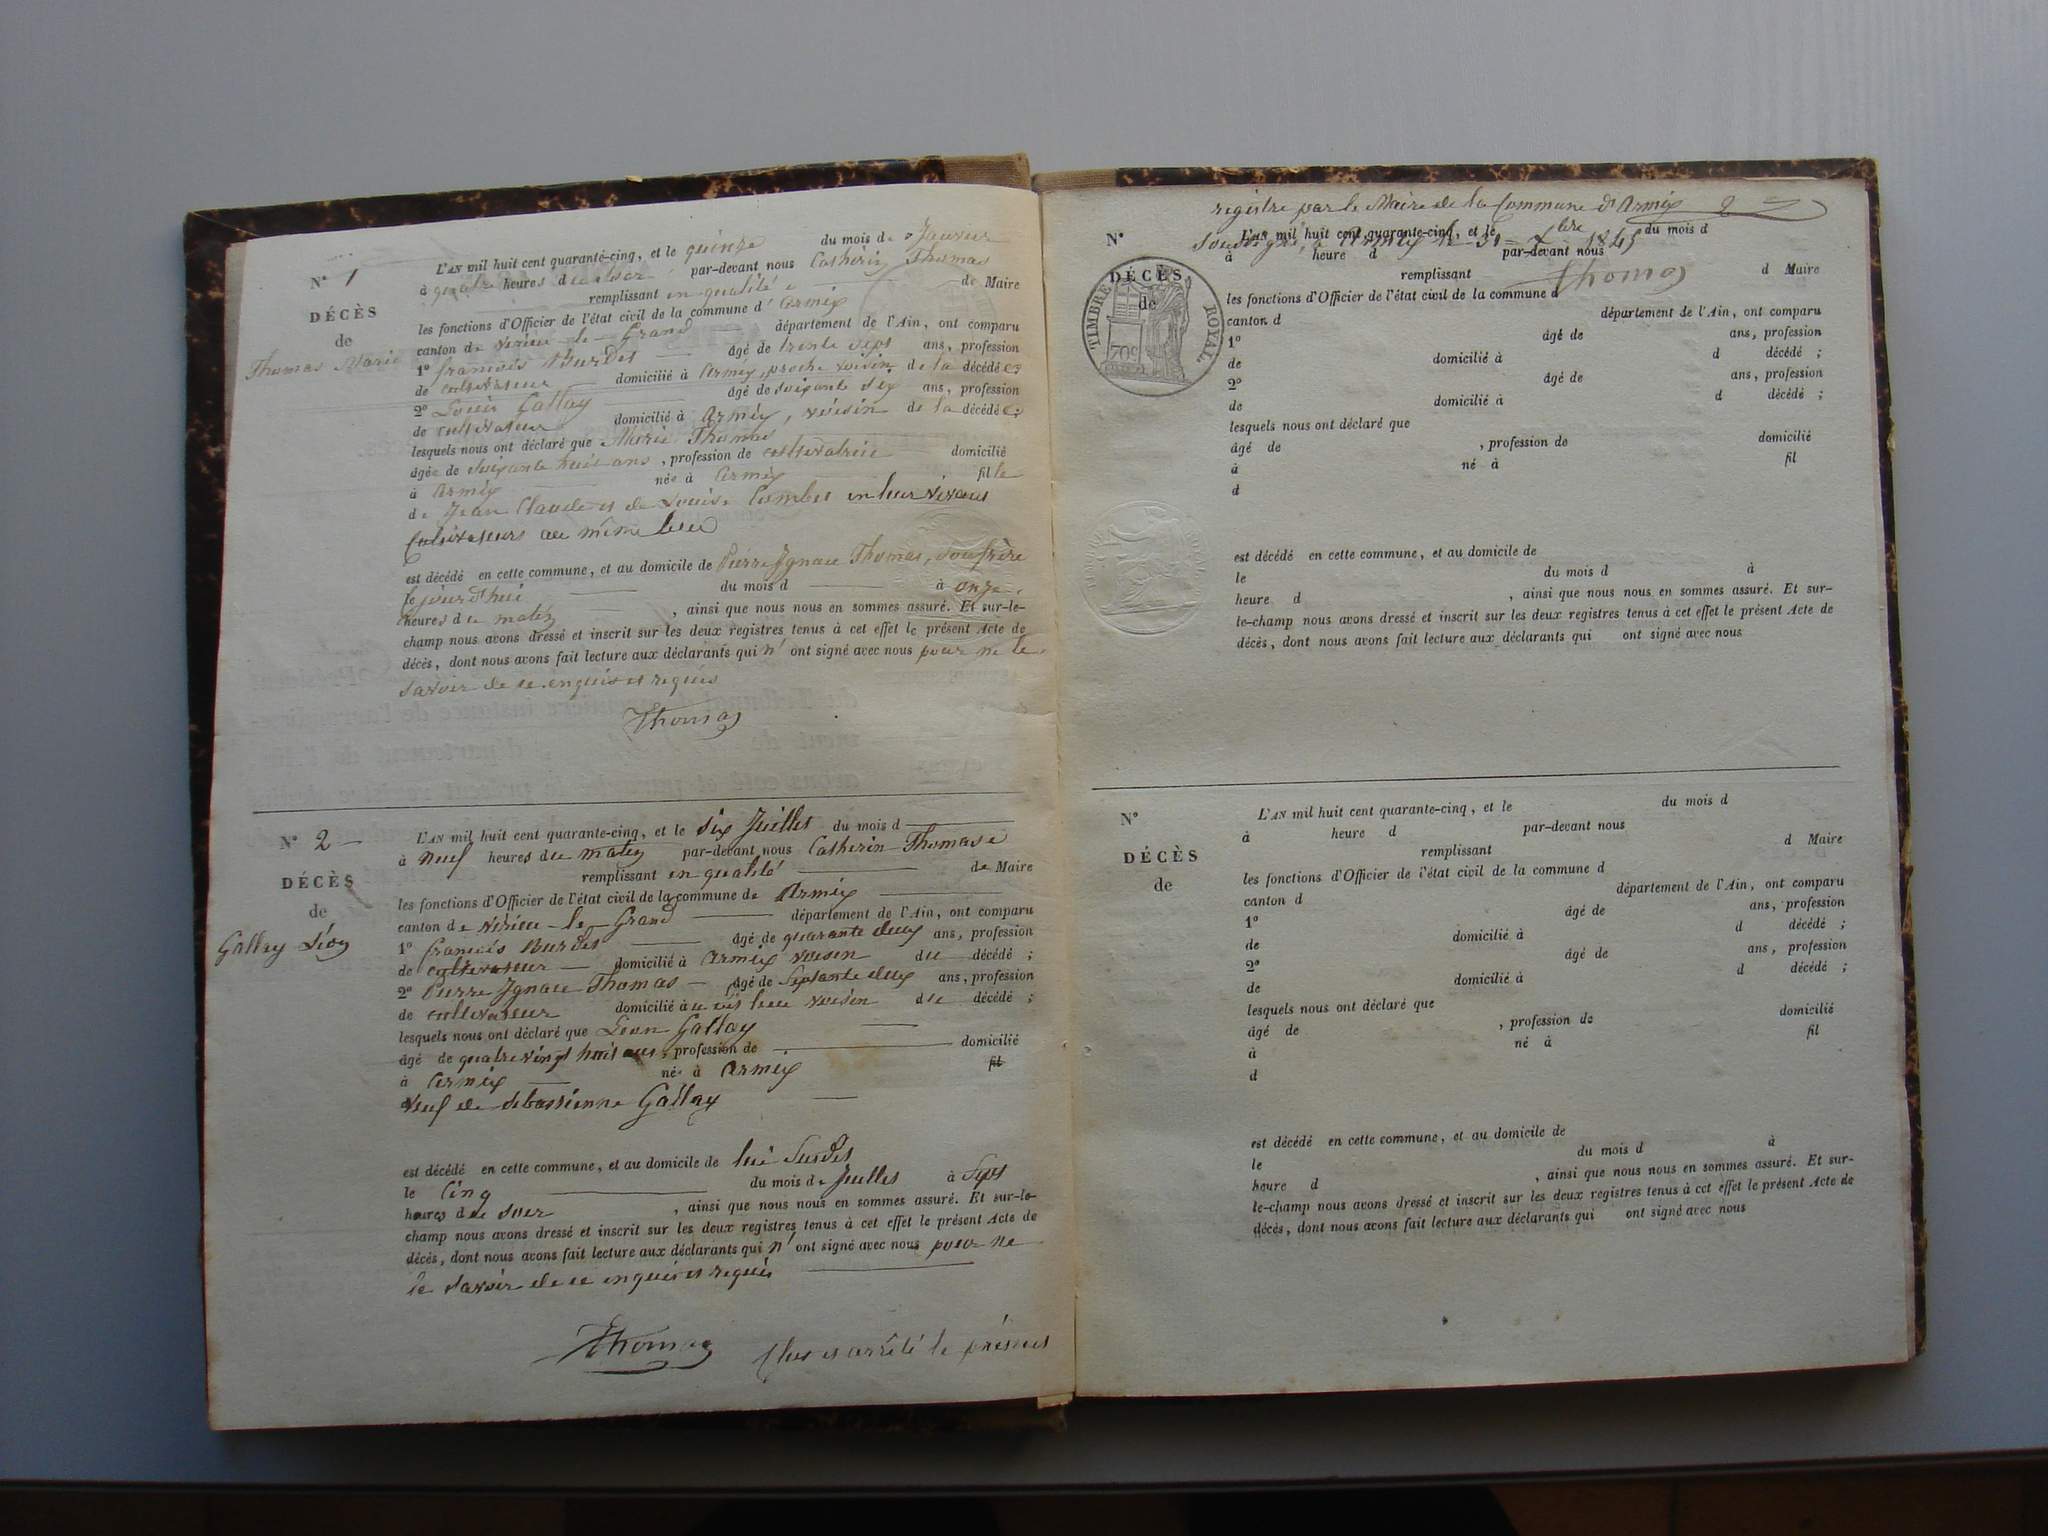 N° 1
DÉCÈS
de
Thomas Marie
L'AN mil huit cent quarante-cinq, et le quinze du mois de Janvier
à quatre heures du soir par-devant nous Catherin Thomas
remplissant en qualité de Maire
les fonctions d'Officier de l'état civil de la commune d'Armix
canton de virieu-le-Grand département de l'Ain, ont comparu
1° francois Burdet âgé de trente sept ans, profession
de cultivateur domicilié à Armix, proche voisin de la décédée;
2° Louis Gallay âgé de soixante six ans, profession
de cultivateur domicilié à Armix, voisin de la décédée;
lesquels nous ont déclaré que Marie Thomas
âgée de soixante huit ans, profession de cultivatrice domicilié
à Armix née à Armix fille
de Jean Claude et de Louise Combet en leur vivant
Cultivateurs au même lieu
est décédé en cette commune, et au domicile de Pierre Ignace Thomas, son frère
le jourd'hui du mois d à onze
heures du matin, ainsi que nous nous en sommes assuré. Et sur-le-
champ nous avons dressé et inscrit sur les deux registres tenus à cet effet le présent Acte de
décès, dont nous avons fait lecture aux déclarants qui n'ont signé avec nous pour ne le
savoir de ce enquis et requis
Thomas
N° 2
DÉCÈS
de
Gallay Léon
L'AN mil huit cent quarante-cinq, et le six Juillet du mois d
à neuf heures du matin par-devant nous Catherin Thomas
remplissant en qualité de Maire
les fonctions d'Officier de l'état civil de la commune de Armix
canton de virieu-le-Grand département de l'Ain, ont comparu
1° francois Burdet âgé de quarante deux ans, profession
de cultivateur domicilié à Armix voisin du décédé;
2° Pierre Ignace Thomas âgé de septante deux ans, profession
de cultivateur domicilié à lieu voisin du décédé;
lesquels nous ont déclaré que Léon Gallay
âgé de quatre vingt trois ans, profession de domicilié
à Armix né à Armix fil
veuf de sebastienne Gallay
est décédé en cette commune, et au domicile de
le cinq du mois de Juillet à Sept
heures du soir, ainsi que nous nous en sommes assuré. Et sur-le-
champ nous avons dressé et inscrit sur les deux registres tenus à cet effet le présent Acte de
décès, dont nous avons fait lecture aux déclarants qui n'ont signé avec nous pour ne
le savoir de ce enquis et requis
Thomas Clos et arrêté le présent
registre par le Maire de la Commune d'Armix 2
N° L'AN mil huit cent quarante-cinq, et le du mois d
soussigné, à Armix le 31 Xbre 1845
à heure d par-devant nous
Thomas
remplissant d Maire
TIMBRE ROYAL
70c
DÉCÈS
de
les fonctions d'Officier de l'état civil de la commune d
canton d département de l'Ain, ont comparu
1° âgé de ans, profession
de domicilié à d décédé;
2° âgé de ans, profession
de domicilié à d décédé;
lesquels nous ont déclaré que
âgé de , profession de domicilié
à né à fil
d
est décédé en cette commune, et au domicile de
le du mois d à
heure d , ainsi que nous nous en sommes assuré. Et sur-
le-champ nous avons dressé et inscrit sur les deux registres tenus à cet effet le présent Acte de
décès, dont nous avons fait lecture aux déclarants qui ont signé avec nous
N°
DÉCÈS
de
L'AN mil huit cent quarante-cinq, et le du mois d
à heure d par-devant nous
remplissant d Maire
les fonctions d'Officier de l'état civil de la commune d
canton d département de l'Ain, ont comparu
1° âgé de ans, profession
de domicilié à d décédé;
2° âgé de ans, profession
de domicilié à d décédé;
lesquels nous ont déclaré que
âgé de , profession de domicilié
à né à fil
d
est décédé en cette commune, et au domicile de
le du mois d à
heure d , ainsi que nous nous en sommes assuré. Et sur-
le-champ nous avons dressé et inscrit sur les deux registres tenus à cet effet le présent Acte de
décès, dont nous avons fait lecture aux déclarants qui ont signé avec nous